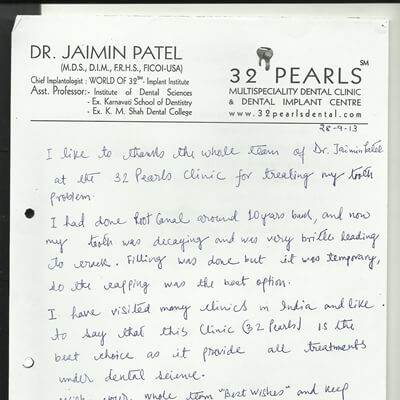 DR. JAIMIN PATEL
(M.D.S., D.I.M., F.R.H.S., FICOI-USA)
Chief Implantologist : WORLD OF 32SM- Implant Institute
Asst. Professor:- - Institute of Dental Sciences
- Ex. Karnavati School of Dentistry
- Ex. K. M. Shah Dental College
32 PEARLS SM
MULTISPECIALITY DENTAL CLINIC
& DENTAL IMPLANT CENTRE
www.32pearlsdental.com
28-9-13
I like to thanks the whole team of Dr. Jaimin Patel
at the 32 Pearls Clinic for treating my tooth
problem.
I had done Root Canal around 10 years back, and now
my tooth was decaying and was very brittle leading
to crack. Filling was done but it was temporary,
so the capping was the best option.
I have visited many clinics in India and like
to say that this Clinic (32 Pearls) is the
best choice as it provide all treatments
under dental science.
your whole team "Best wishes" and keep